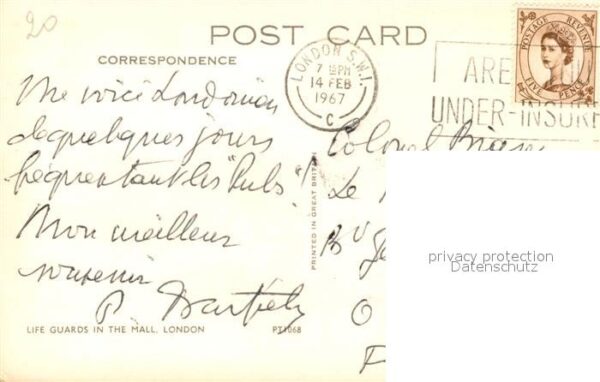 20
POST CARD
CORRESPONDENCE
POSTAGE REVENUE
FIVE PENCE
LONDON S.W.1.
7 15 PM
14 FEB
1967
C
ARE
UNDER-INSUR
Me voici Londonien
de quelques jours
fréquentant les "Pubs"!
Mon meilleur
souvenir
P.
Colonel
Le
Bd Ge
O
F
PRINTED IN GREAT BRITAIN
privacy protection
Datenschutz
LIFE GUARDS IN THE MALL, LONDON
PT1068